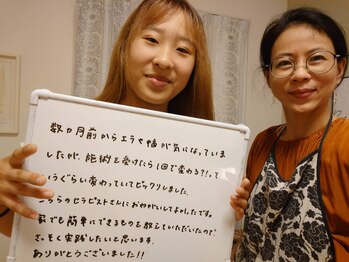 数か月前からエラや幅が気になっていま
したが、施術を受けたら1回で変わる?!って
いうぐらい変わっていてビックリしました。
こちらのセラピストさんにおねがいしてよかったです。
家でも簡単にできるものを教えていただいたので
さっそく実践したいと思います。
ありがとうございました!!